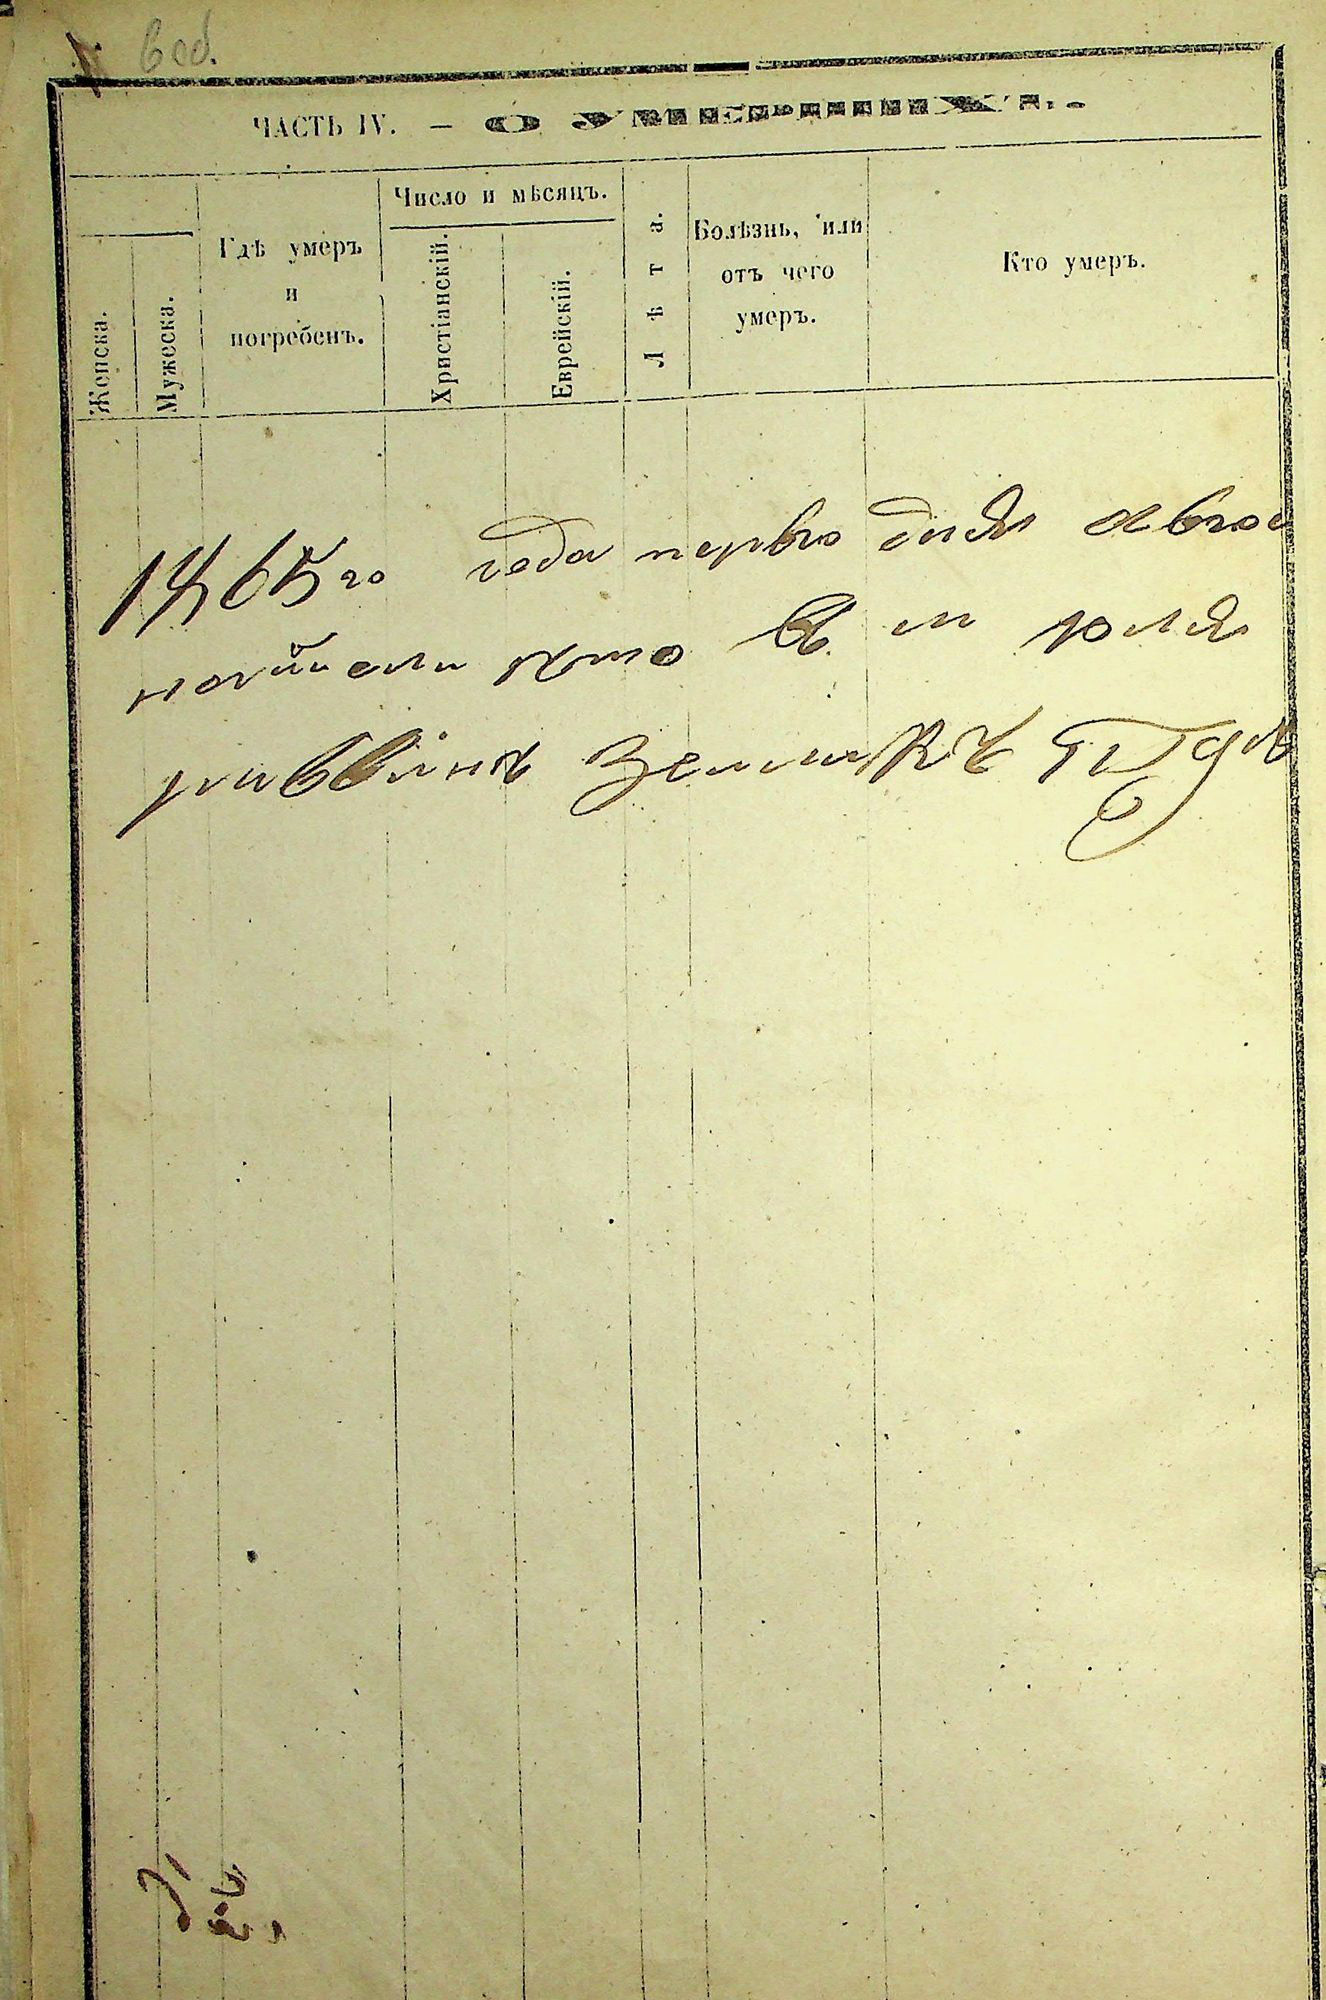 6 об.
ЧАСТЬ IV. — О УМЕРШИХЪ.
Женска.
Мужеска.
Гдѣ умеръ
и
погребенъ.
Число и мѣсяцъ.
Христіанскій.
Еврейскій.
Лѣта.
Болѣзнь, или
отъ чего
умеръ.
Кто умеръ.
1865го года перво дня авгос
что в м юля
раввинъ